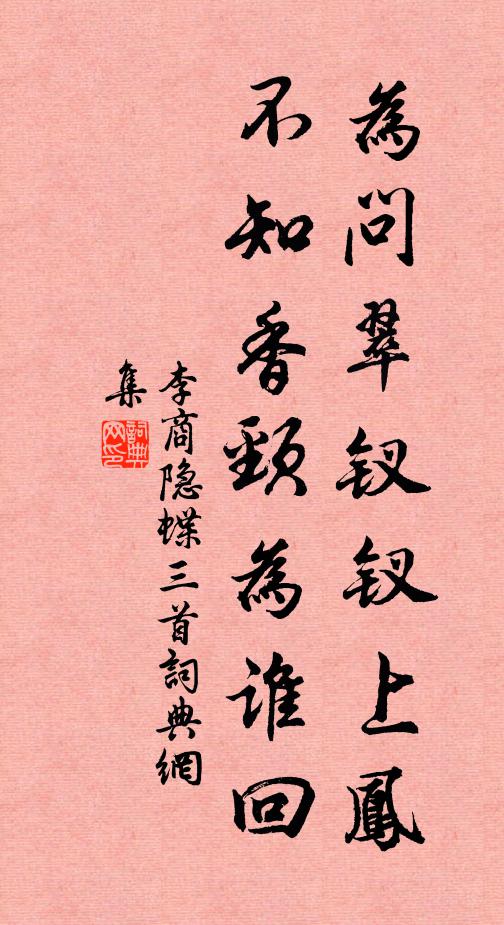 為問翠釵釵上鳳
不知香頸為誰回
李商隐蝶三首詞典網
集
詞典网印